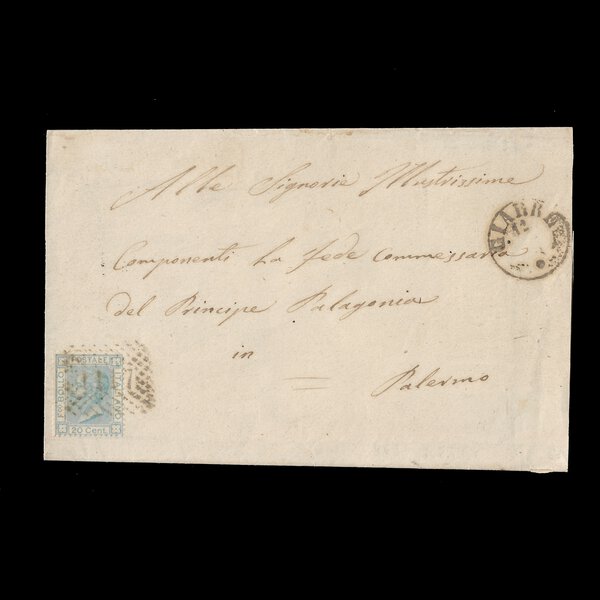 Alle Signorie Illustrissime
Componenti la fede Commessaria
del Principe Palagonia
in
= Palermo
GIARRE
12
POSTALE
BOLLO
ITALIANO
20 Cent.